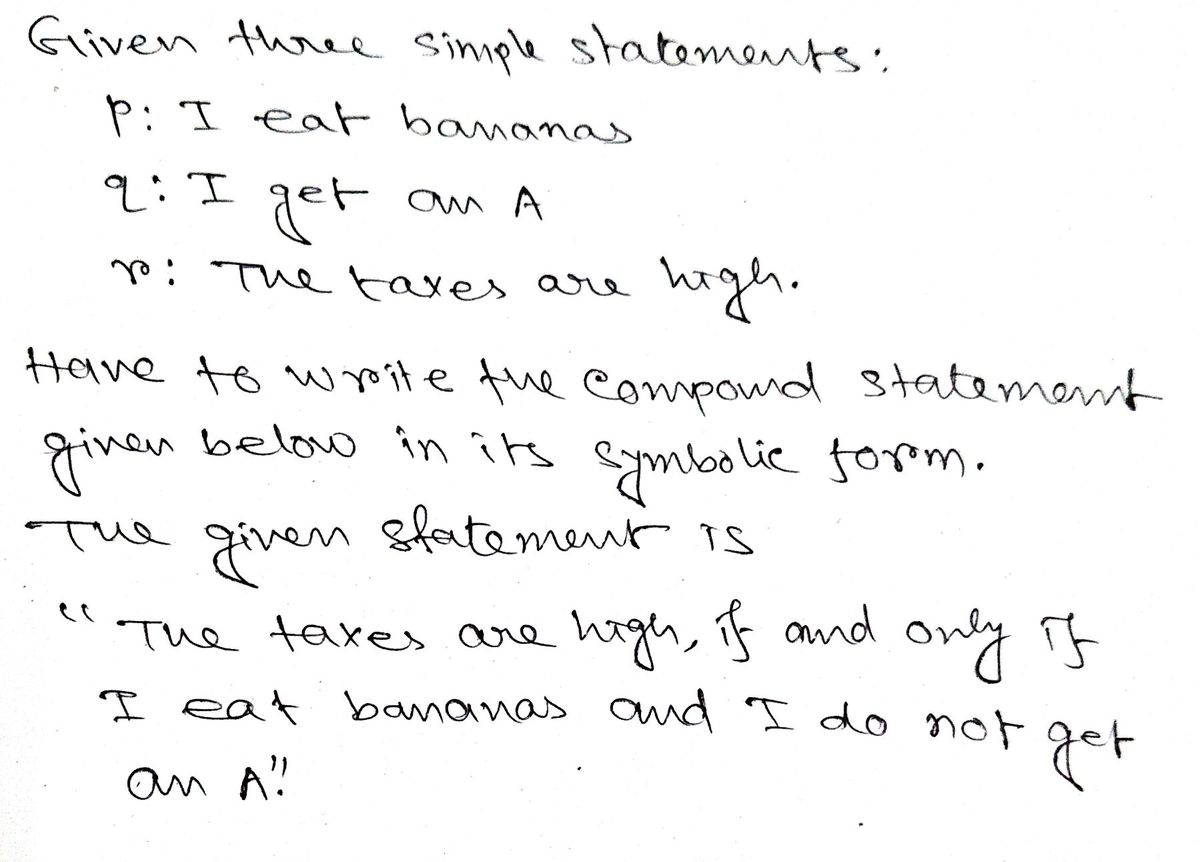 Given three simple statements:
p: I eat bananas
q: I get an A
r: The taxes are high.
Have to write the compound statement
given below in its symbolic form.
The given statement is
"The taxes are high, if and only if
I eat bananas and I do not get
an A".